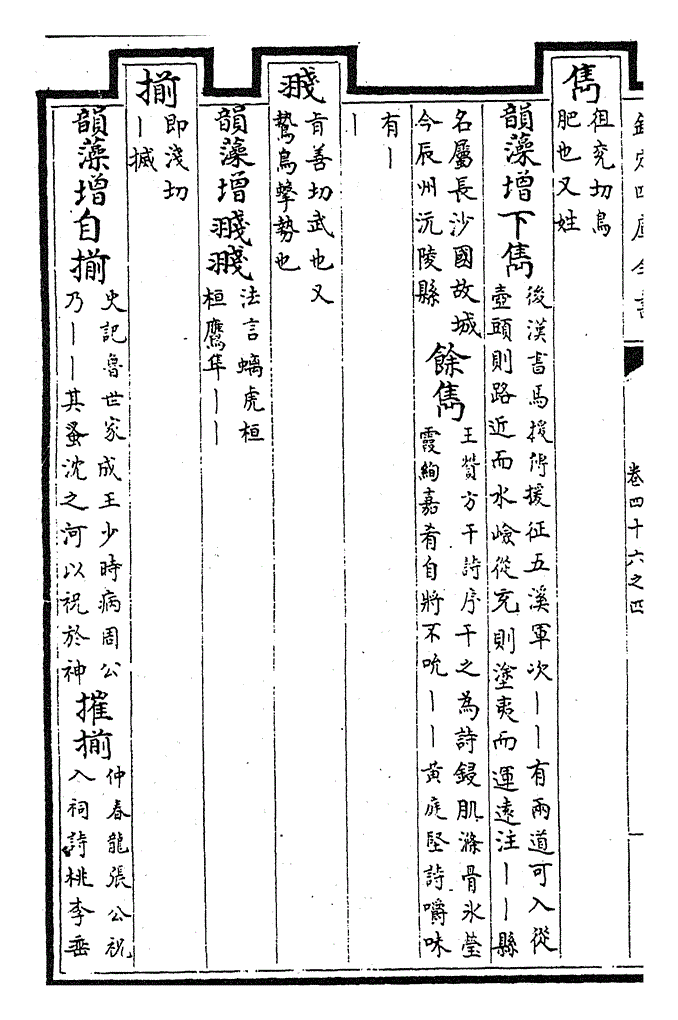 欽定四庫全書
卷四十六之四
雋
徂兖切鳥
肥也又姓
韻藻增下雋
後漢書馬援傳援征五溪軍次〡〡有兩道可入從
壺頭則路近而水嶮從充則塗夷而運遠注〡〡縣
名屬長沙國故城
今辰州沅陵縣
餘雋
王贊方干詩序干之為詩鋟肌滌骨氷瑩
霞絢嘉肴自將不吮〡〡黄庭堅詩嚼味
有〡
〡
㦮
肯善切武也又
鷙鳥擊勢也
韻藻增㦮㦮
法言螭虎桓
桓鷹隼〡〡
揃
即淺切
〡搣
韻藻增自揃
史記魯世家成王少時病周公
乃〡〡其蚤沈之河以祝於神
摧揃
仲春龍張公祝
入祠詩桃李垂